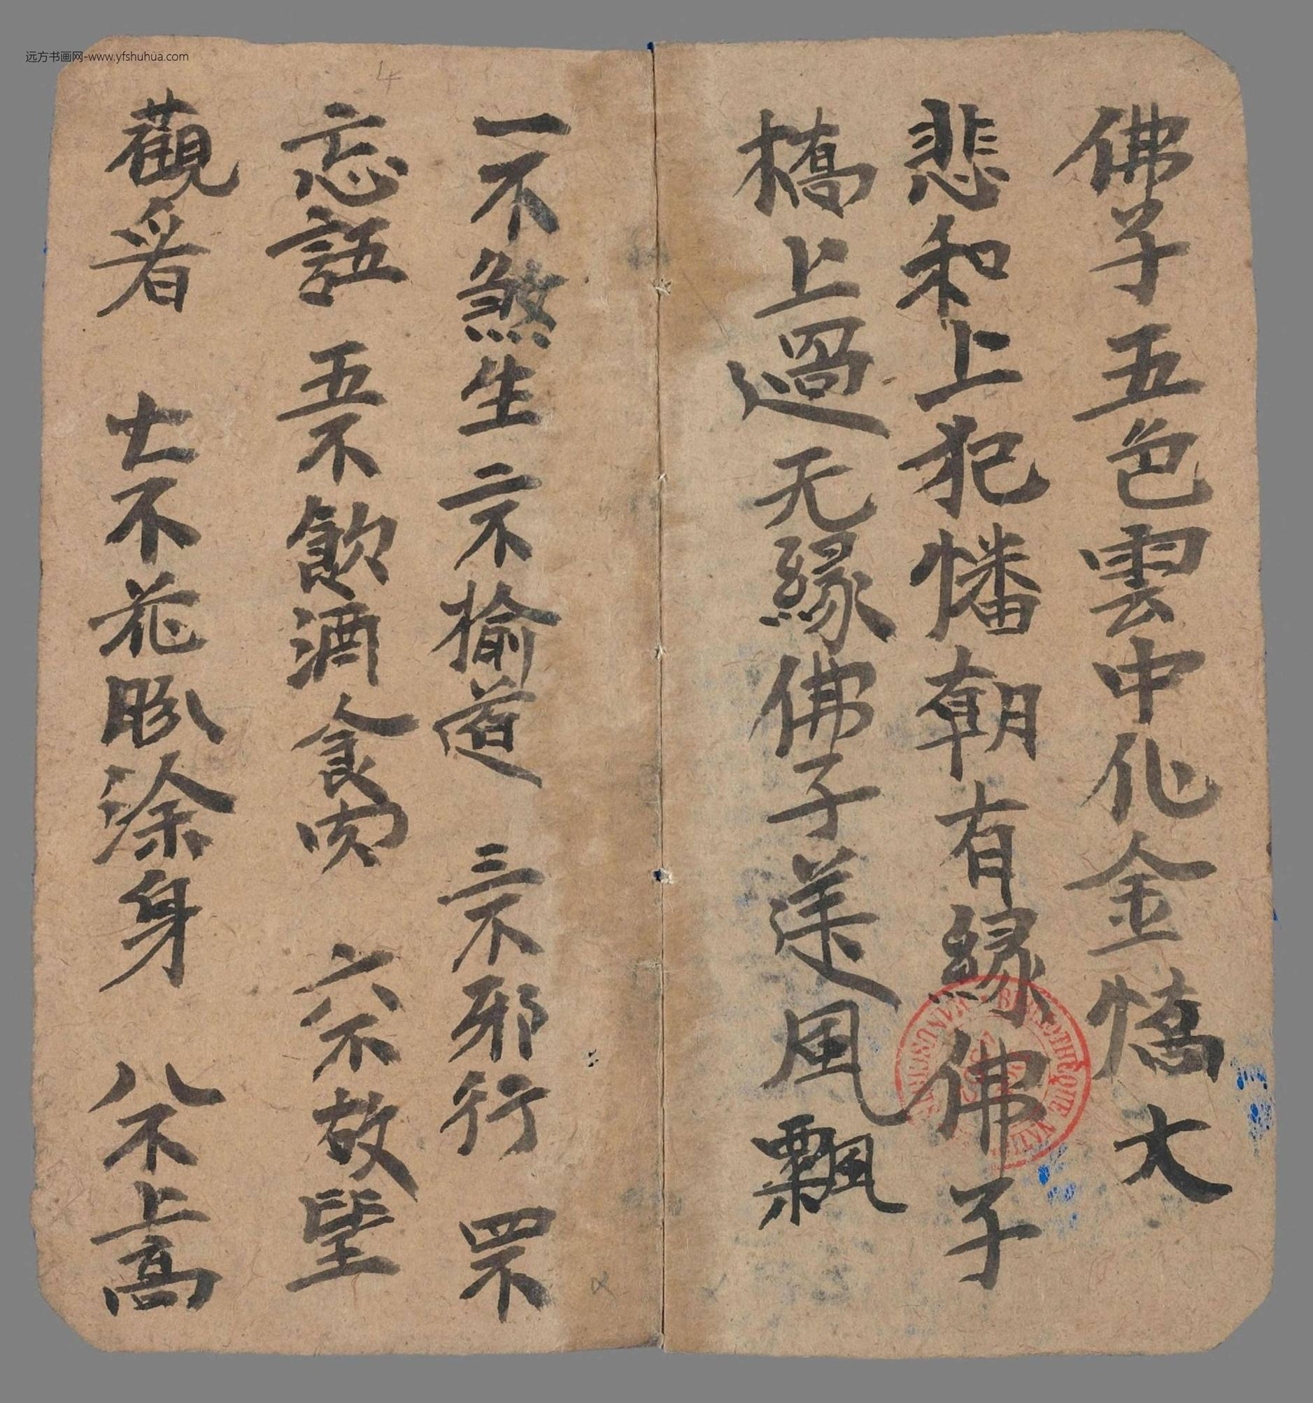 佛子五色雲中化金憍大
悲和上犯幡朝有緣佛子
橋上過无緣佛子送風飄
一不煞生二不揄道三不邪行四不
忘語五不飲酒食肉六不故望
觀看七不花
涂身八不上高
远方书画网-www.yfshuhua.com